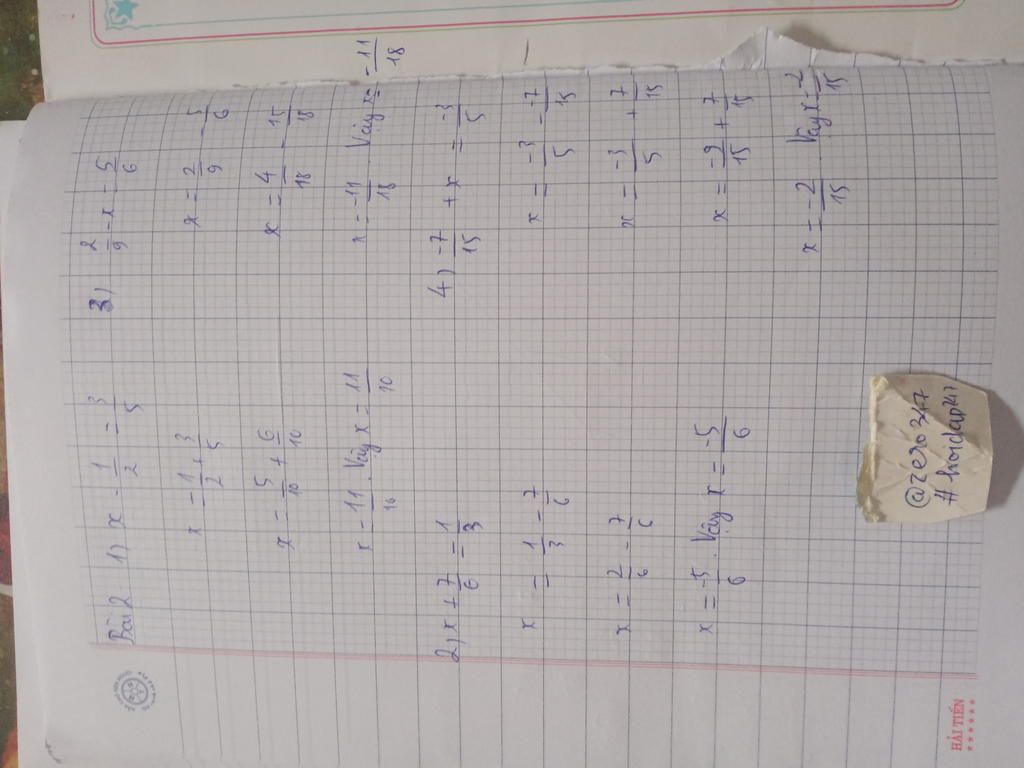 Bài 2: 1) x - 1/2 = 3/5
x = 1/2 + 3/5
x = 5/10 + 6/10
x = 11/10. Vậy x = 11/10
2) x + 7/6 = 1/3
x = 1/3 - 7/6
x = 2/6 - 7/6
x = -5/6. Vậy x = -5/6
3) 2/9 - x = 5/6
x = 2/9 - 5/6
x = 4/18 - 15/18
x = -11/18 Vậy x = -11/18
4) -7/15 + x = -3/5
x = -3/5 - -7/15
x = -3/5 + 7/15
x = -9/15 + 7/15
x = -2/15 Vậy x = -2/15
@zero347
#hoidap247
HẢI TIẾN